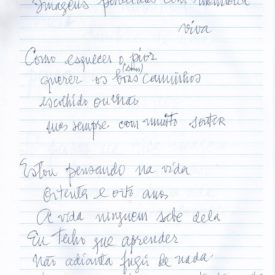 Imagens com memória
viva
Como esquecer o pior
(bons)
querer os bons caminhos
escolhido ou não
mas sempre com muito
Estou pensando na vida
oitenta e oito anos
A vida ninguem sabe dela
Eu tenho que aprender
não adianta fugir de nada